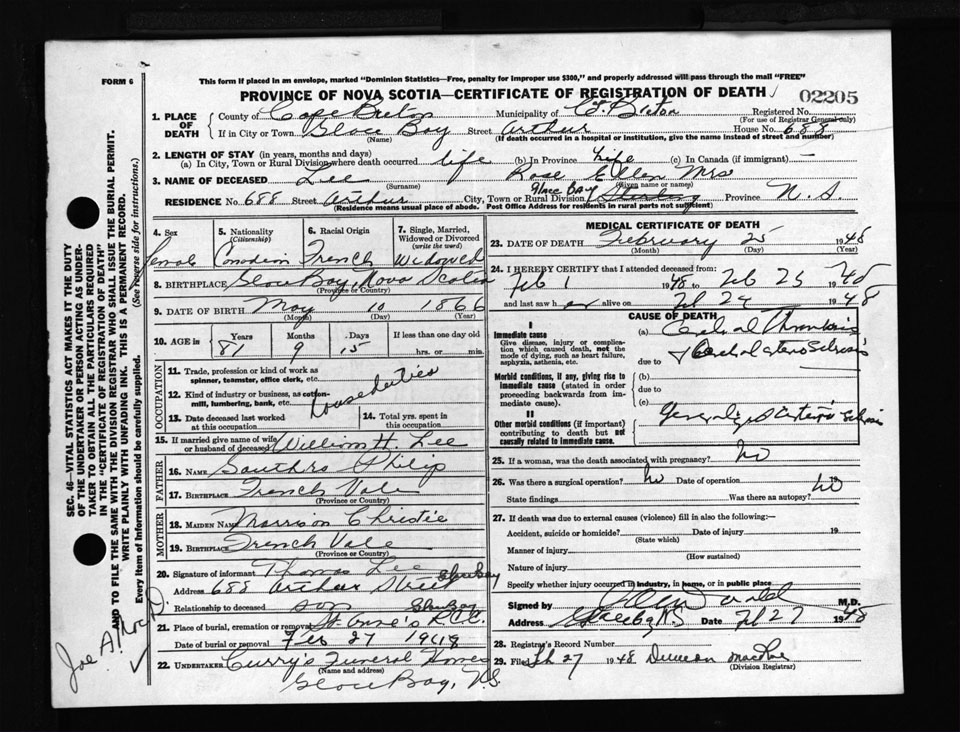 FORM 6
This form if placed in an envelope, marked "Dominion Statistics—Free, penalty for improper use $300," and properly addressed will pass through the mail "FREE"
PROVINCE OF NOVA SCOTIA—CERTIFICATE OF REGISTRATION OF DEATH
02205
1. PLACE OF DEATH
County of Cape Breton Municipality of C. Breton Registered No.
(For use of Registrar General only)
If in City or Town Glace Bay Street Arthur House No. 688
(Name) (If death occurred in a hospital or institution, give the name instead of street and number)
2. LENGTH OF STAY (in years, months and days)
(a) In City, Town or Rural Division where death occurred life (b) In Province Life (c) In Canada (if immigrant) —
3. NAME OF DECEASED Lee Rose Ellen Mrs
(Surname) (Given name or names)
RESIDENCE No. 688 Street Arthur City, Town or Rural Division Glace Bay Province N.S.
(Residence means usual place of abode. Post Office Address for residents in rural parts not sufficient)
4. Sex
female
5. Nationality (Citizenship)
Canadian
6. Racial Origin
French
7. Single, Married, Widowed or Divorced (write the word)
Widowed
8. BIRTHPLACE Glace Bay, Nova Scotia
(Province or Country)
9. DATE OF BIRTH May 10 1866
(Month) (Day) (Year)
10. AGE is Years 81 Months 9 Days 15 If less than one day old
hrs. or min.
OCCUPATION
11. Trade, profession or kind of work as spinner, teamster, office clerk, etc.
12. Kind of industry or business, as cotton-mill, lumbering, bank, etc.
household duties
13. Date deceased last worked at this occupation
14. Total yrs. spent in this occupation
15. If married give name of wife or husband of deceased William H. Lee
FATHER
16. NAME Philip
17. BIRTHPLACE French Vale
(Province or Country)
MOTHER
18. MAIDEN NAME Morrison Christie
19. BIRTHPLACE French Vale
(Province or Country)
20. Signature of informant Thomas Lee
Address 688 Arthur Street Glace Bay
Relationship to deceased son
21. Place of burial, cremation or removal St. Anne's R.C.C. Glace Bay
Date of burial or removal Feb 27 1948
22. UNDERTAKER Curry's Funeral Home
(Name and address)
Glace Bay, N.S.
MEDICAL CERTIFICATE OF DEATH
23. DATE OF DEATH February 25 1948
(Month) (Day) (Year)
24. I HEREBY CERTIFY that I attended deceased from:
Feb 1 1948 to Feb 25 1948
and last saw her alive on Feb 24 1948
CAUSE OF DEATH
I
Immediate cause
Give disease, injury or complication which caused death, not the mode of dying, such as heart failure, asphyxia, asthenia, etc.
(a) Cerebral Thrombosis
due to
Morbid conditions, if any, giving rise to immediate cause (stated in order proceeding backwards from immediate cause).
(b)
due to
(c)
II
Other morbid conditions (if important) contributing to death but not causally related to immediate cause.
25. If a woman, was the death associated with pregnancy? No
26. Was there a surgical operation? No Date of operation 19
State findings Was there an autopsy? No
27. If death was due to external causes (violence) fill in also the following:—
Accident, suicide or homicide? Date of injury 19
(State which)
Manner of injury
(How sustained)
Nature of injury
Specify whether injury occurred in industry, in home, or in public place
Signed by M.D.
Address Glace Bay N.S. Date Feb 27 1948
28. Registrar's Record Number
29. Filed Feb 27 1948 Duncan MacRae
(Division Registrar)
SEC. 46—VITAL STATISTICS ACT MAKES IT THE DUTY OF THE UNDERTAKER OR PERSON ACTING AS UNDERTAKER TO OBTAIN ALL THE PARTICULARS REQUIRED IN THE "CERTIFICATE OF REGISTRATION OF DEATH" AND TO FILE THE SAME WITH THE DIVISION REGISTRAR WHO SHALL ISSUE THE BURIAL PERMIT.
WRITE PLAINLY WITH UNFADING INK. THIS IS A PERMANENT RECORD.
Every item of Information should be carefully supplied. (See reverse side for instructions.)
Joe A.